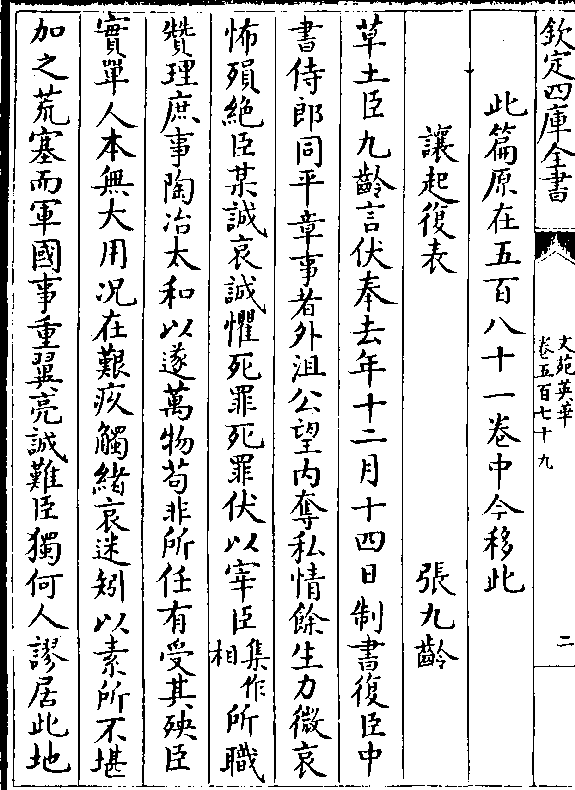 欽定四庫全書
文苑英華
卷五百七十九
二
此篇原在五百八十一卷中今移此
讓起復表 張九齡
草土臣九齡言伏奉去年十二月十四日制書復臣中
書侍郎同平章事者外沮公望内奪私情餘生力微哀
怖殞絶臣某誠哀誠懼死罪死罪伏以宰臣集作相所職
贊理庶事陶冶太和以遂萬物茍非所任有受其殃臣
實單人本無大用况在艱疚觸緒哀迷矧以素所不堪
加之荒塞而軍國事重翼亮誠難臣獨何人謬居此地